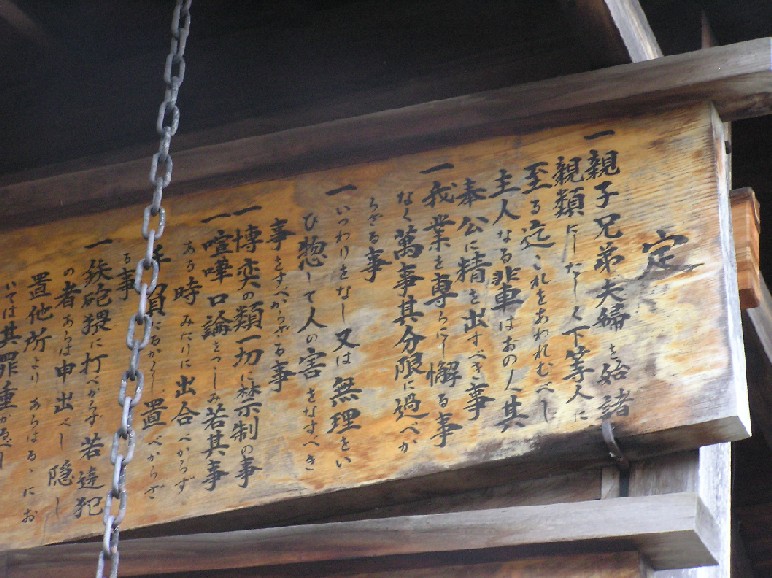 定
一親子兄弟夫婦を始諸
親類にしたしく下等人に
至る迄これをあわれむべし
主人なる輩はおの人其
奉公に精を出すべき事
一我業を専らにし懈る事
なく萬事其分限に過べか
らざる事
一いつわりをなし又は無理をい
ひ惣して人の害をなすべき
事をすべからざる事
一博奕の類一切に禁制の事
一喧嘩口論をつゝしみ若其事
ある時みだりに出合べからず
手負たるかくし置べからざ
る事
一鉄砲猥に打べからず若違犯
の者あらば申出べし隠し
置他所よりあらはるゝにお
いては其罪重かるべし